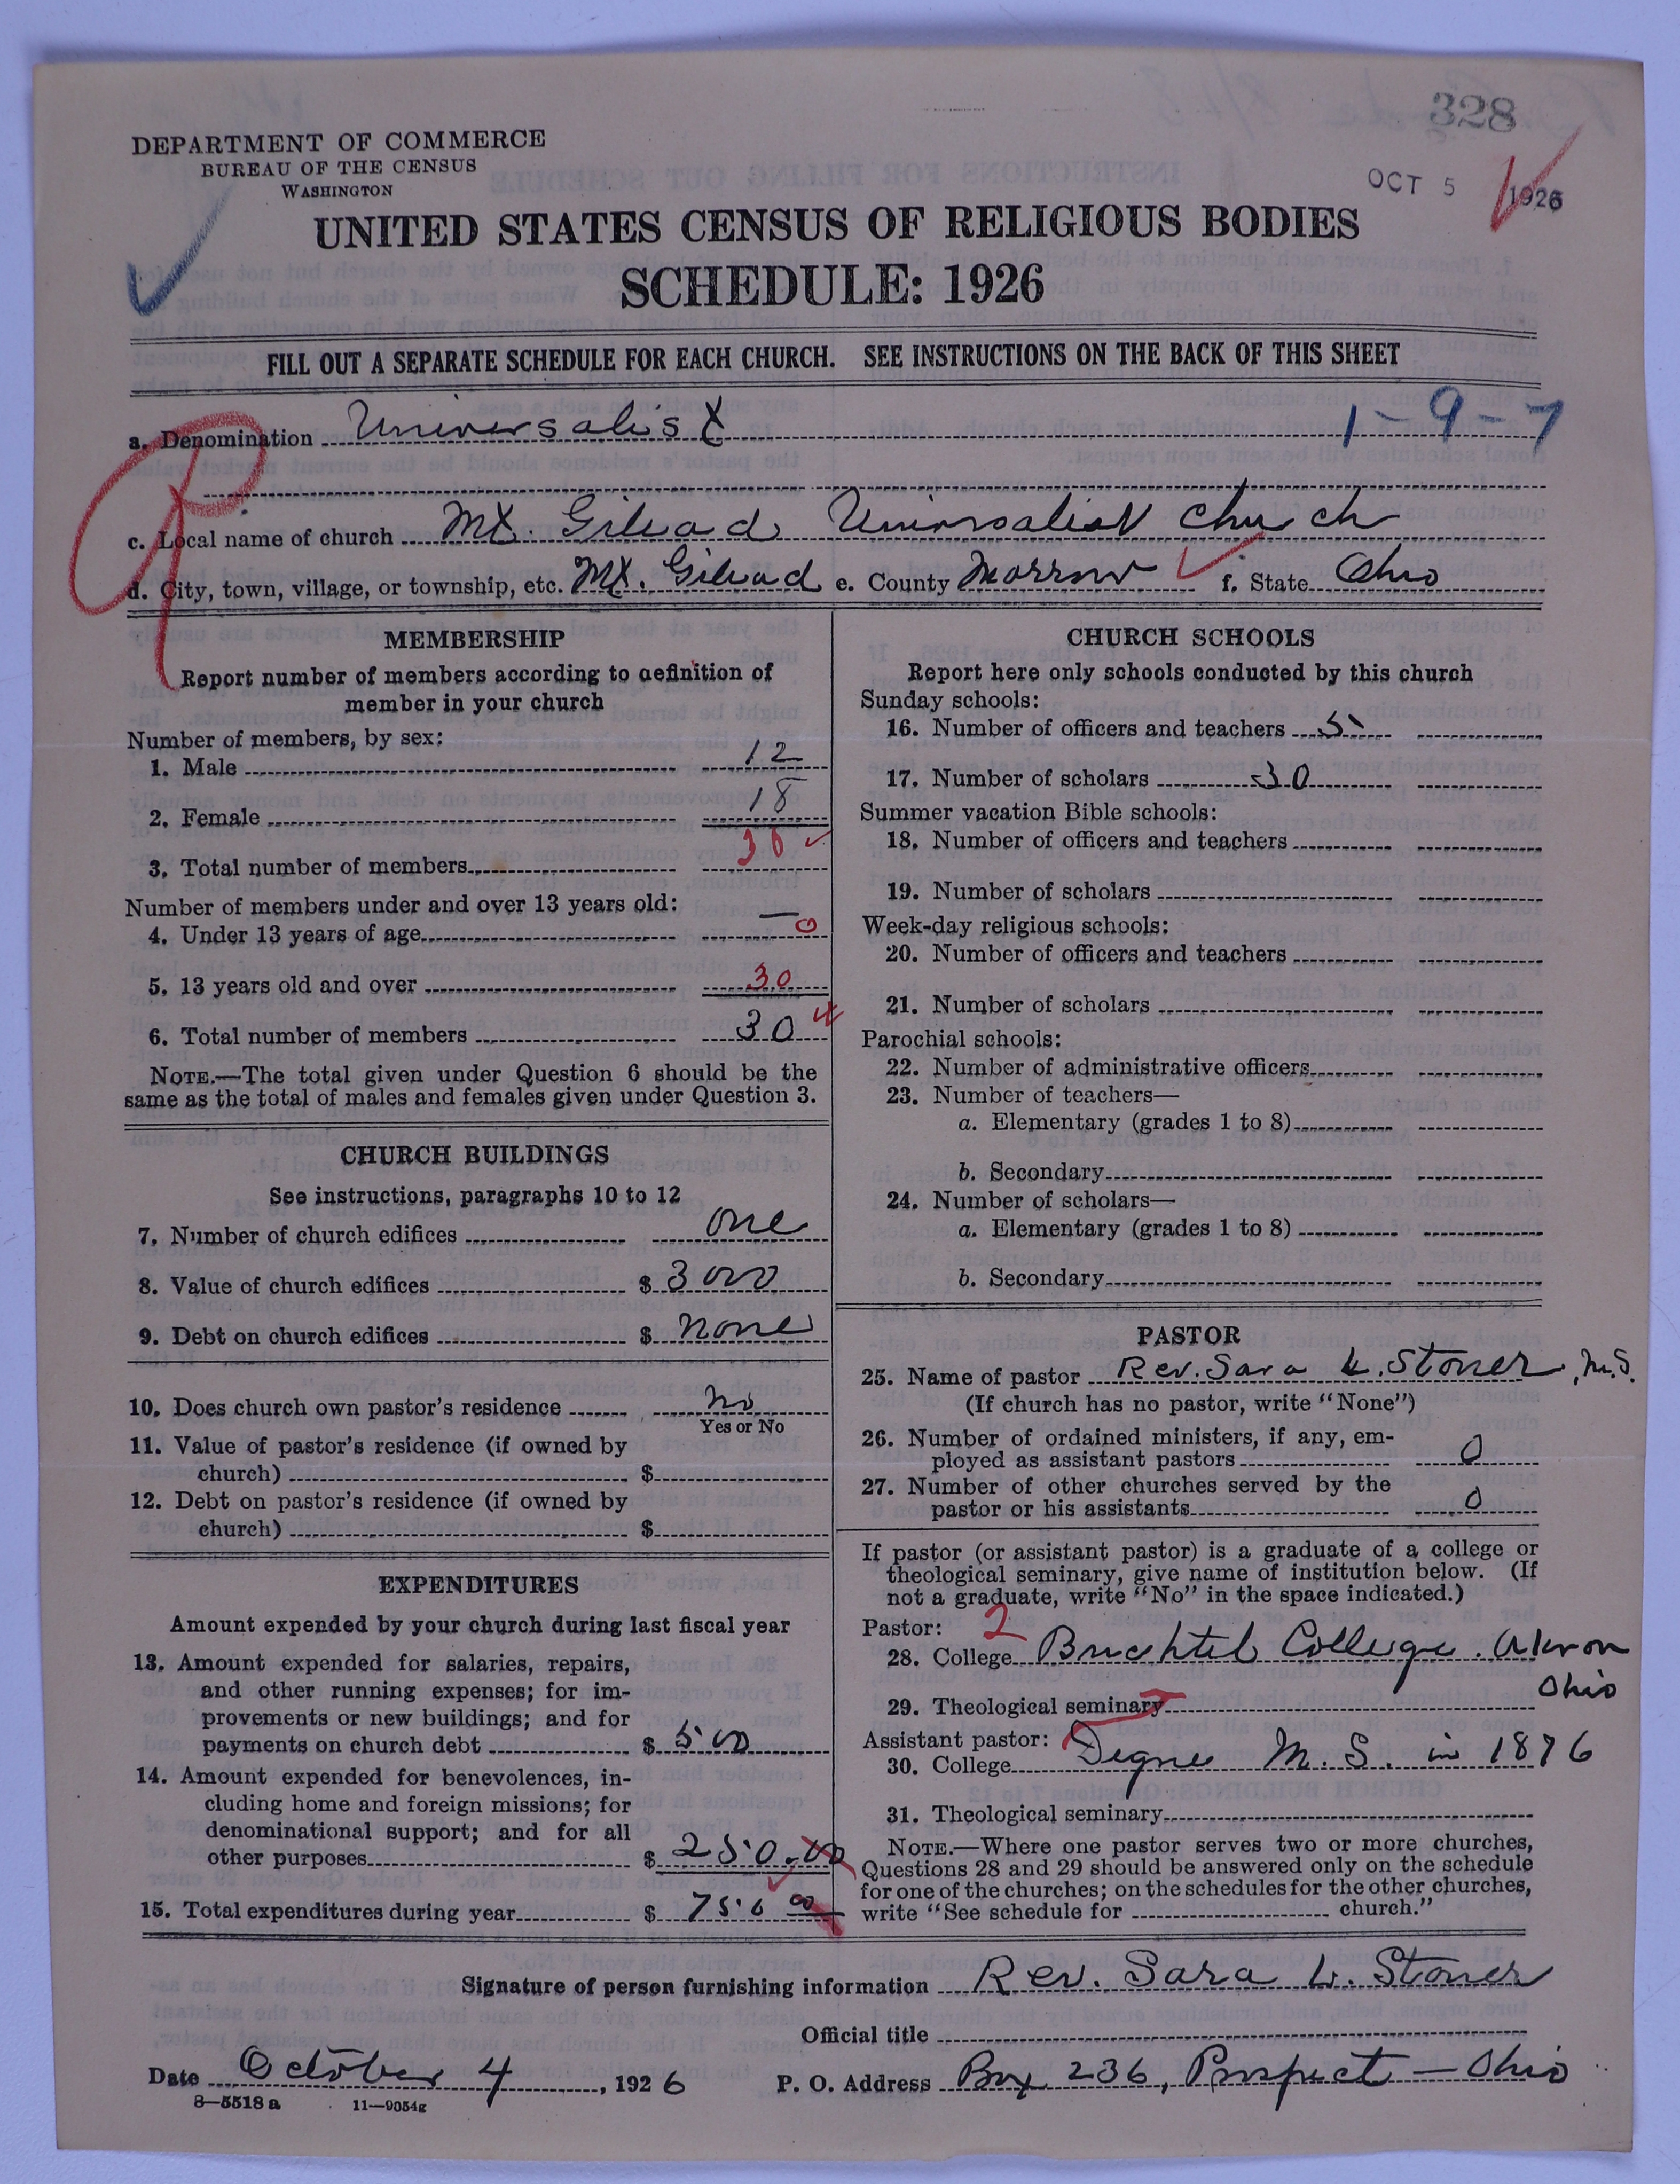 328
OCT 5 1926
DEPARTMENT OF COMMERCE
BUREAU OF THE CENSUS
WASHINGTON
UNITED STATES CENSUS OF RELIGIOUS BODIES
SCHEDULE: 1926
FILL OUT A SEPARATE SCHEDULE FOR EACH CHURCH. SEE INSTRUCTIONS ON THE BACK OF THIS SHEET
a. Denomination Universalist 1-9-7
c. Local name of church Mt. Gilead Universalist Church
d. City, town, village, or township, etc. Mt. Gilead e. County Morrow f. State Ohio
MEMBERSHIP
Report number of members according to definition of
member in your church
Number of members, by sex:
1. Male 12
2. Female 18
3. Total number of members 30
Number of members under and over 13 years old:
4. Under 13 years of age — 0
5. 13 years old and over 30
6. Total number of members 30
NOTE.—The total given under Question 6 should be the
same as the total of males and females given under Question 3.
CHURCH BUILDINGS
See instructions, paragraphs 10 to 12
7. Number of church edifices one
8. Value of church edifices $ 3000
9. Debt on church edifices $ none
10. Does church own pastor's residence no
Yes or No
11. Value of pastor's residence (if owned by
church) $
12. Debt on pastor's residence (if owned by
church) $
EXPENDITURES
Amount expended by your church during last fiscal year
13. Amount expended for salaries, repairs,
and other running expenses; for im-
provements or new buildings; and for
payments on church debt $ 500
14. Amount expended for benevolences, in-
cluding home and foreign missions; for
denominational support; and for all
other purposes $ 250.00
15. Total expenditures during year $ 750 00
CHURCH SCHOOLS
Report here only schools conducted by this church
Sunday schools:
16. Number of officers and teachers 5
17. Number of scholars 30
Summer vacation Bible schools:
18. Number of officers and teachers
19. Number of scholars
Week-day religious schools:
20. Number of officers and teachers
21. Number of scholars
Parochial schools:
22. Number of administrative officers
23. Number of teachers—
a. Elementary (grades 1 to 8)
b. Secondary
24. Number of scholars—
a. Elementary (grades 1 to 8)
b. Secondary
PASTOR
25. Name of pastor Rev. Sara L. Stoner, M.S.
(If church has no pastor, write "None")
26. Number of ordained ministers, if any, em-
ployed as assistant pastors 0
27. Number of other churches served by the
pastor or his assistants 0
If pastor (or assistant pastor) is a graduate of a college or
theological seminary, give name of institution below. (If
not a graduate, write "No" in the space indicated.)
Pastor: 2
28. College Buchtel College. Akron
Ohio
29. Theological seminary
Assistant pastor:
30. College Degree M. S. in 1876
31. Theological seminary
NOTE.—Where one pastor serves two or more churches,
Questions 28 and 29 should be answered only on the schedule
for one of the churches; on the schedules for the other churches,
write "See schedule for church."
Signature of person furnishing information Rev. Sara L. Stoner
Official title
Date October 4, 1926 P. O. Address Box 236, Prospect — Ohio
8—5518a 11—9054g